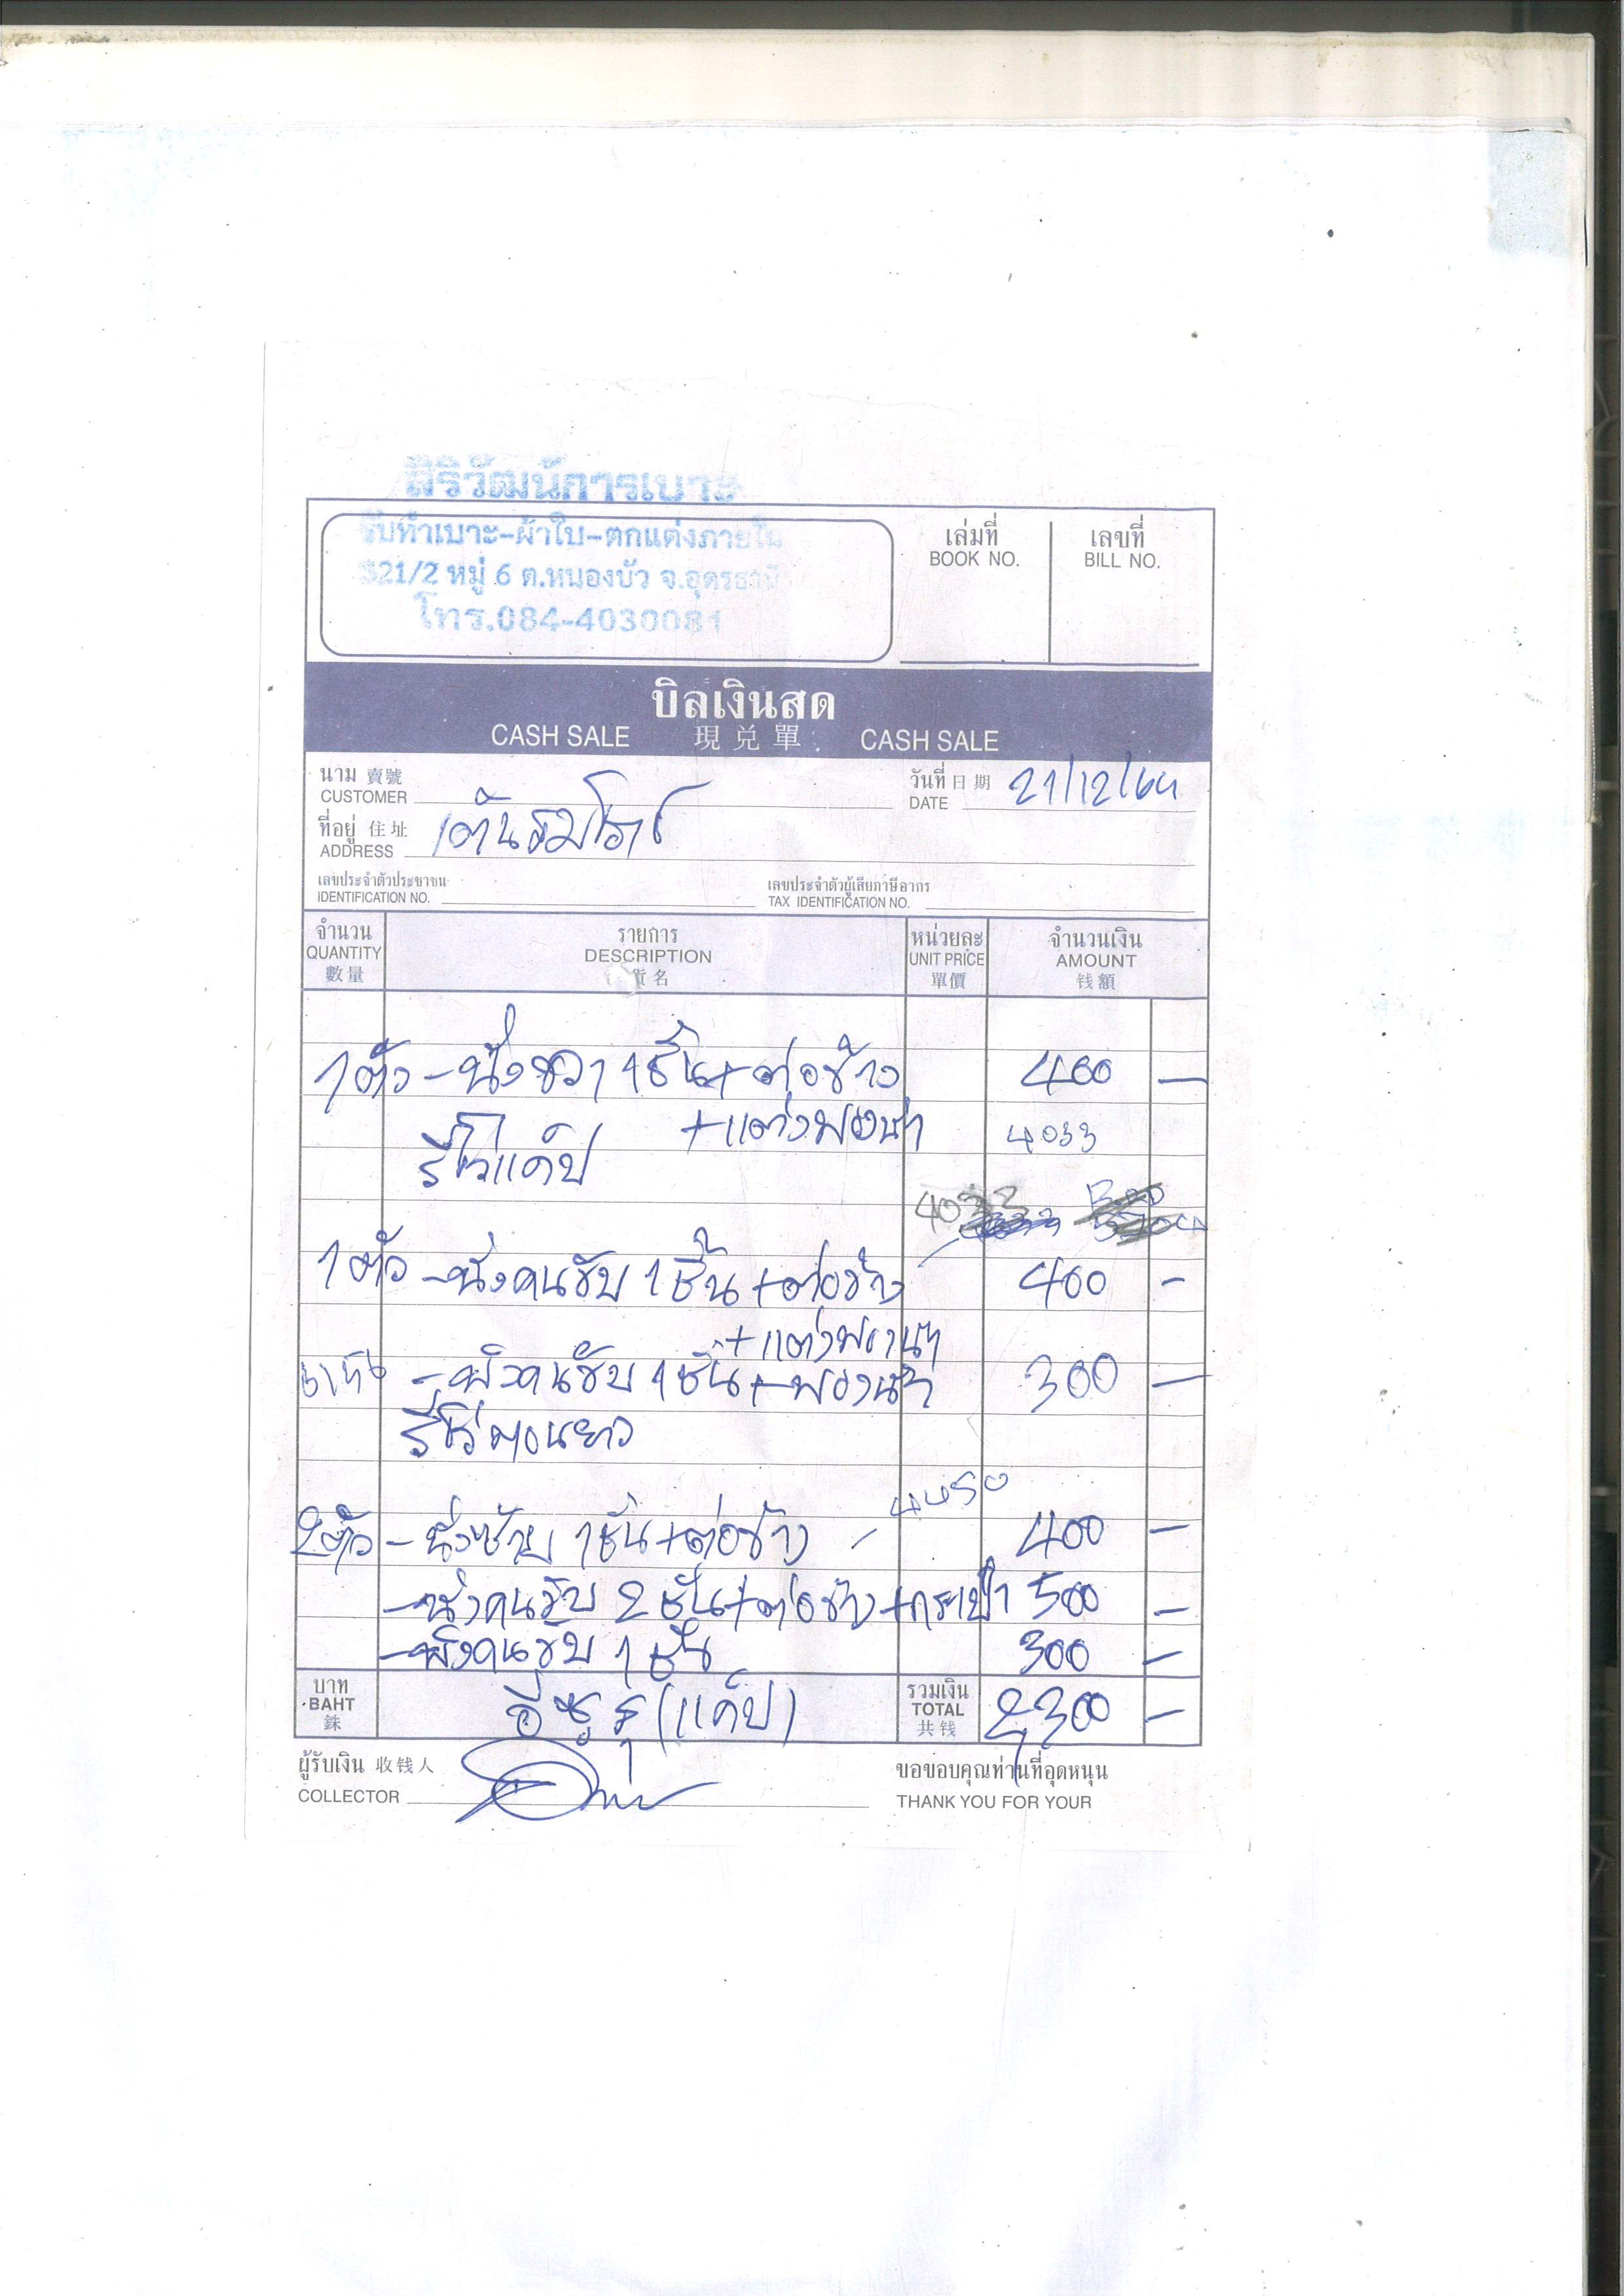 สิริวัฒน์การเบาะ
รับทำเบาะ-ผ้าใบ-ตกแต่งภายใน
321/2 หมู่ 6 ต.หนองบัว จ.อุดรธานี
โทร.084-4030081
เล่มที่ เลขที่
BOOK NO. BILL NO.
บิลเงินสด
CASH SALE 現兌單 CASH SALE
นาม 賣號 วันที่ 日期 21/12/64
CUSTOMER DATE
ที่อยู่ 住址 เต้นรมโอโ
ADDRESS
เลขประจำตัวประชาชน เลขประจำตัวผู้เสียภาษีอากร
IDENTIFICATION NO. TAX IDENTIFICATION NO.
จำนวน รายการ หน่วยละ จำนวนเงิน
QUANTITY DESCRIPTION UNIT PRICE AMOUNT
數量 貨名 單價 钱額
1 ตัว - นั่งขวา 1 ชิ้น + ต่อข้าง 400 -
+ แต่งฟองน้ำ 4033
รีโว่แค็ป
4033
1 ตัว - นั่งคนขับ 1 ชิ้น + ต่อข้าง 400 -
+ แต่งฟองน้ำ
- พิงคนขับ 1 ชิ้น + ฟองน้ำ 300 -
รีโว่ตอนยาว
2 ตัว - นั่งซ้าย 1 ชิ้น + ต่อข้าง - 400 -
- นั่งคนขับ 2 ชิ้น + ต่อข้าง + กระเป๋า 500 -
- พิงคนขับ 1 ชิ้น 300 -
บาท อีซูซุ (แค็ป) รวมเงิน 2,300 -
BAHT TOTAL
銖 共钱
ผู้รับเงิน 收钱人 ขอขอบคุณท่านที่อุดหนุน
COLLECTOR THANK YOU FOR YOUR